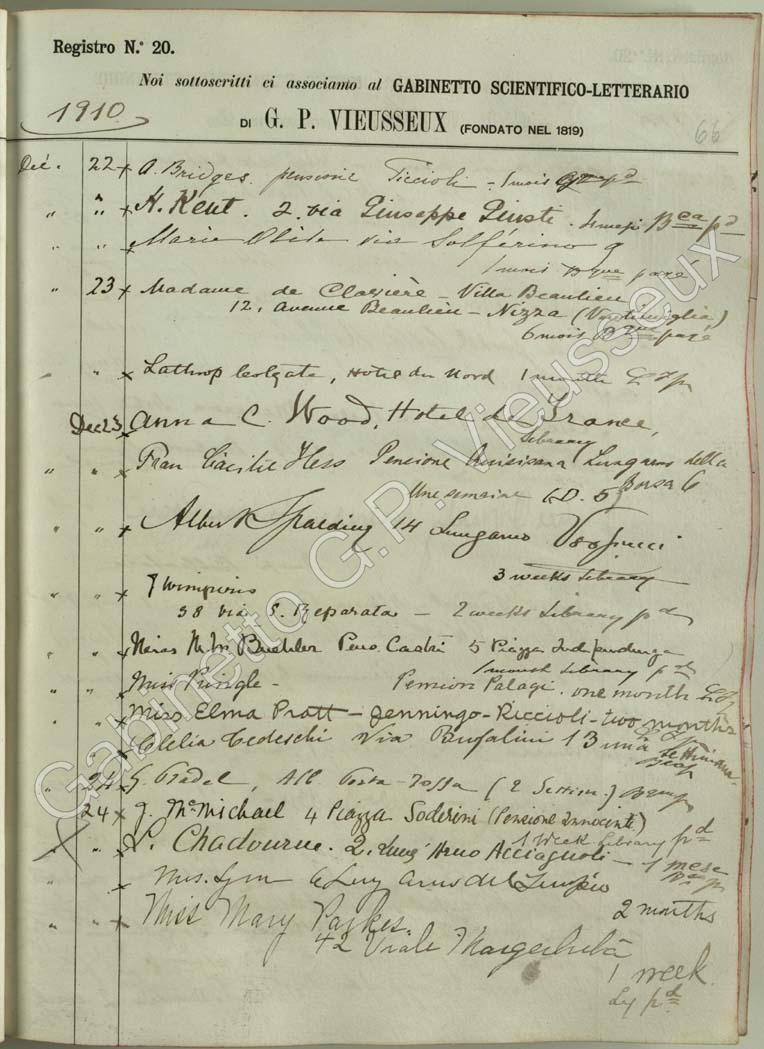 Registro N.° 20.
Noi sottoscritti ci associamo al GABINETTO SCIENTIFICO-LETTERARIO
DI G. P. VIEUSSEUX (FONDATO NEL 1819)
1910
66
Dec. 22 x A. Bridges. pensione Riccioli - 1 mois pd
" " x H. Kent. 2. via Giuseppe Giusti. Bca pd
" " Marie via Solférino 9
1 mois Bque payé
" 23 x Madame de Clavière - Villa Beaulieu
12, Avenue Beaulieu - Nizza (Ventimiglia)
6 mois Bque payé
" " x Lathrop Colgate, Hotel du Nord 1 month
Dec 23 x Anna C. Wood, Hotel de France,
Library
" " x Frau Cäcilie Hess Pensione Quisisana Lungarno della
Borsa 6
Une semaine
" " x Albert Spalding 14 Lungarno Vespucci
3 weeks Library
" " x
38 via S. Reparata - 2 weeks Library pd
" " x Buehler Pens. Castri 5 Piazza Indipendenza
1 month Library pd
" " x Miss Pringle - Pension Palagi. one month
" " x Miss Elma Pratt - Jennings-Riccioli - two months
" " x Clelia Tedeschi Via Bufalini 13 una settimana
" 24 x G. Pradel, Alla Porta Rossa
24 x J. McMichael 4 Piazza Soderini (Pensione Innocenti)
1 Week Library pd
" " x L. Chadourne. 2. Lung' Arno Acciaguoli - 1 mese
" x Mrs. 6 Lung Arno del Tempio
2 months
" x Miss Mary Parkes.
42 Viale Margherita
1 week
Ly pd
Gabinetto G.P. Vieusseux